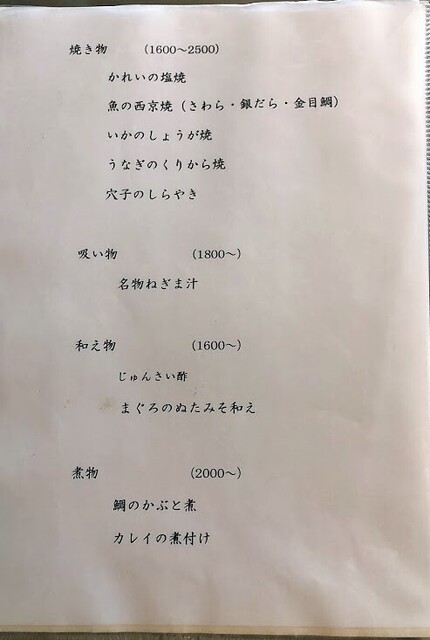 焼き物 (1600～2500)
かれいの塩焼
魚の西京焼(さわら・銀だら・金目鯛)
いかのしょうが焼
うなぎのくりから焼
穴子のしらやき
吸い物 (1800～)
名物ねぎま汁
和え物 (1600～)
じゅんさい酢
まぐろのぬたみそ和え
煮物 (2000～)
鯛のかぶと煮
カレイの煮付け